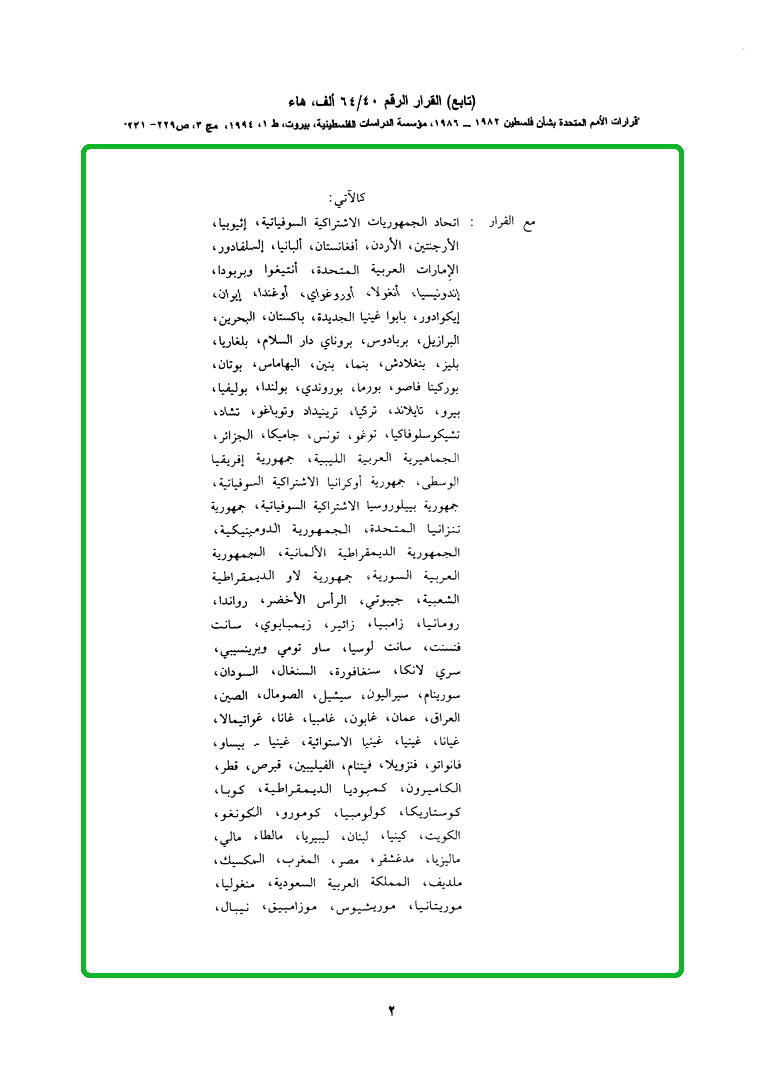 (تابع) القرار الرقم ٦٤/٤٠ ألف، هاء
"قرارات الأمم المتحدة بشأن فلسطين ١٩٨٢ ــ ١٩٨٦، مؤسسة الدراسات الفلسطينية، بيروت، ط ١، ١٩٩٤، مج ٣، ص٢٢٩- ٢٣١"
كالآتي:
مع القرار : اتحاد الجمهوريات الاشتراكية السوفياتية، إثيوبيا،
الأرجنتين، الأردن، أفغانستان، ألبانيا، إلسلفادور،
الإمارات العربية المتحدة، أنتيغوا وبربودا،
إندونيسيا، أنغولا، أوروغواي، أوغندا، إيران،
إيكوادور، بابوا غينيا الجديدة، باكستان، البحرين،
البرازيل، بربادوس، بروناي دار السلام، بلغاريا،
بليز، بنغلادش، بنما، بنين، البهاماس، بوتان،
بوركينا فاصو، بورما، بوروندي، بولندا، بوليفيا،
بيرو، تايلاند، تركيا، ترينيداد وتوباغو، تشاد،
تشيكوسلوفاكيا، توغو، تونس، جاميكا، الجزائر،
الجماهيرية العربية الليبية، جمهورية إفريقيا
الوسطى، جمهورية أوكرانيا الاشتراكية السوفياتية،
جمهورية بييلوروسيا الاشتراكية السوفياتية، جمهورية
تنزانيا المتحدة، الجمهورية الدومينيكية،
الجمهورية الديمقراطية الألمانية، الجمهورية
العربية السورية، جمهورية لاو الديمقراطية
الشعبية، جيبوتي، الرأس الأخضر، رواندا،
رومانيا، زامبيا، زائير، زيمبابوي، سانت
فنسنت، سانت لوسيا، ساو تومي وبرينسيبي،
سري لانكا، سنغافورة، السنغال، السودان،
سورينام، سيراليون، سيشيل، الصومال، الصين،
العراق، عمان، غابون، غامبيا، غانا، غواتيمالا،
غيانا، غينيا، غينيا الاستوائية، غينيا - بيساو،
فانواتو، فنزويلا، فيتنام، الفيليبين، قبرص، قطر،
الكاميرون، كمبوديا الديمقراطية، كوبا،
كوستاريكا، كولومبيا، كومورو، الكونغو،
الكويت، كينيا، لبنان، ليبيريا، مالطا، مالي،
ماليزيا، مدغشقر، مصر، المغرب، المكسيك،
ملديف، المملكة العربية السعودية، منغوليا،
موريتانيا، موريشيوس، موزامبيق، نيبال،
٢